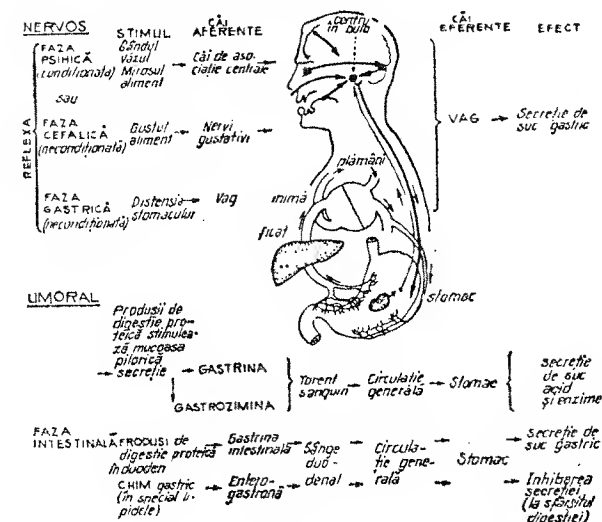 NERVOS STIMUL CĂI AFERENTE
centru în bulb
CĂI EFERENTE EFECT
REFLEXA
FAZA PSIHICĂ (condiționată)
Gândul
Văzul
Mirosul
aliment
Căi de aso-
ciație centrale
sau
FAZA
CEFALICĂ
(necondiționată)
Gustul
aliment
Nervi
gustativi
VAG
Secreție de
suc gastric
FAZA
GASTRICĂ
(necondiționată)
Distensia
stomacului
Vag
plămâni
inimă
ficat
stomac
UMORAL
Produșii de
digestie pro-
teică stimulea-
ză mucoasa
pilorică
secreție
GASTRINA
GASTROZIMINA
Torent
sanguin
Circulație
generală
Stomac
secreție
de suc
acid
și enzime
FAZA
INTESTINALĂ
PRODUȘI de
digestie proteică
în duoden
Gastrina
intestinală
CHIM gastric
(în special li-
pidele)
Entero-
gastronă
Sânge
duo-
denal
Circula-
ție gene-
rală
Stomac
Secreție de
suc gastric
Inhibarea
secreției
(la sfârșitul
digestiei)